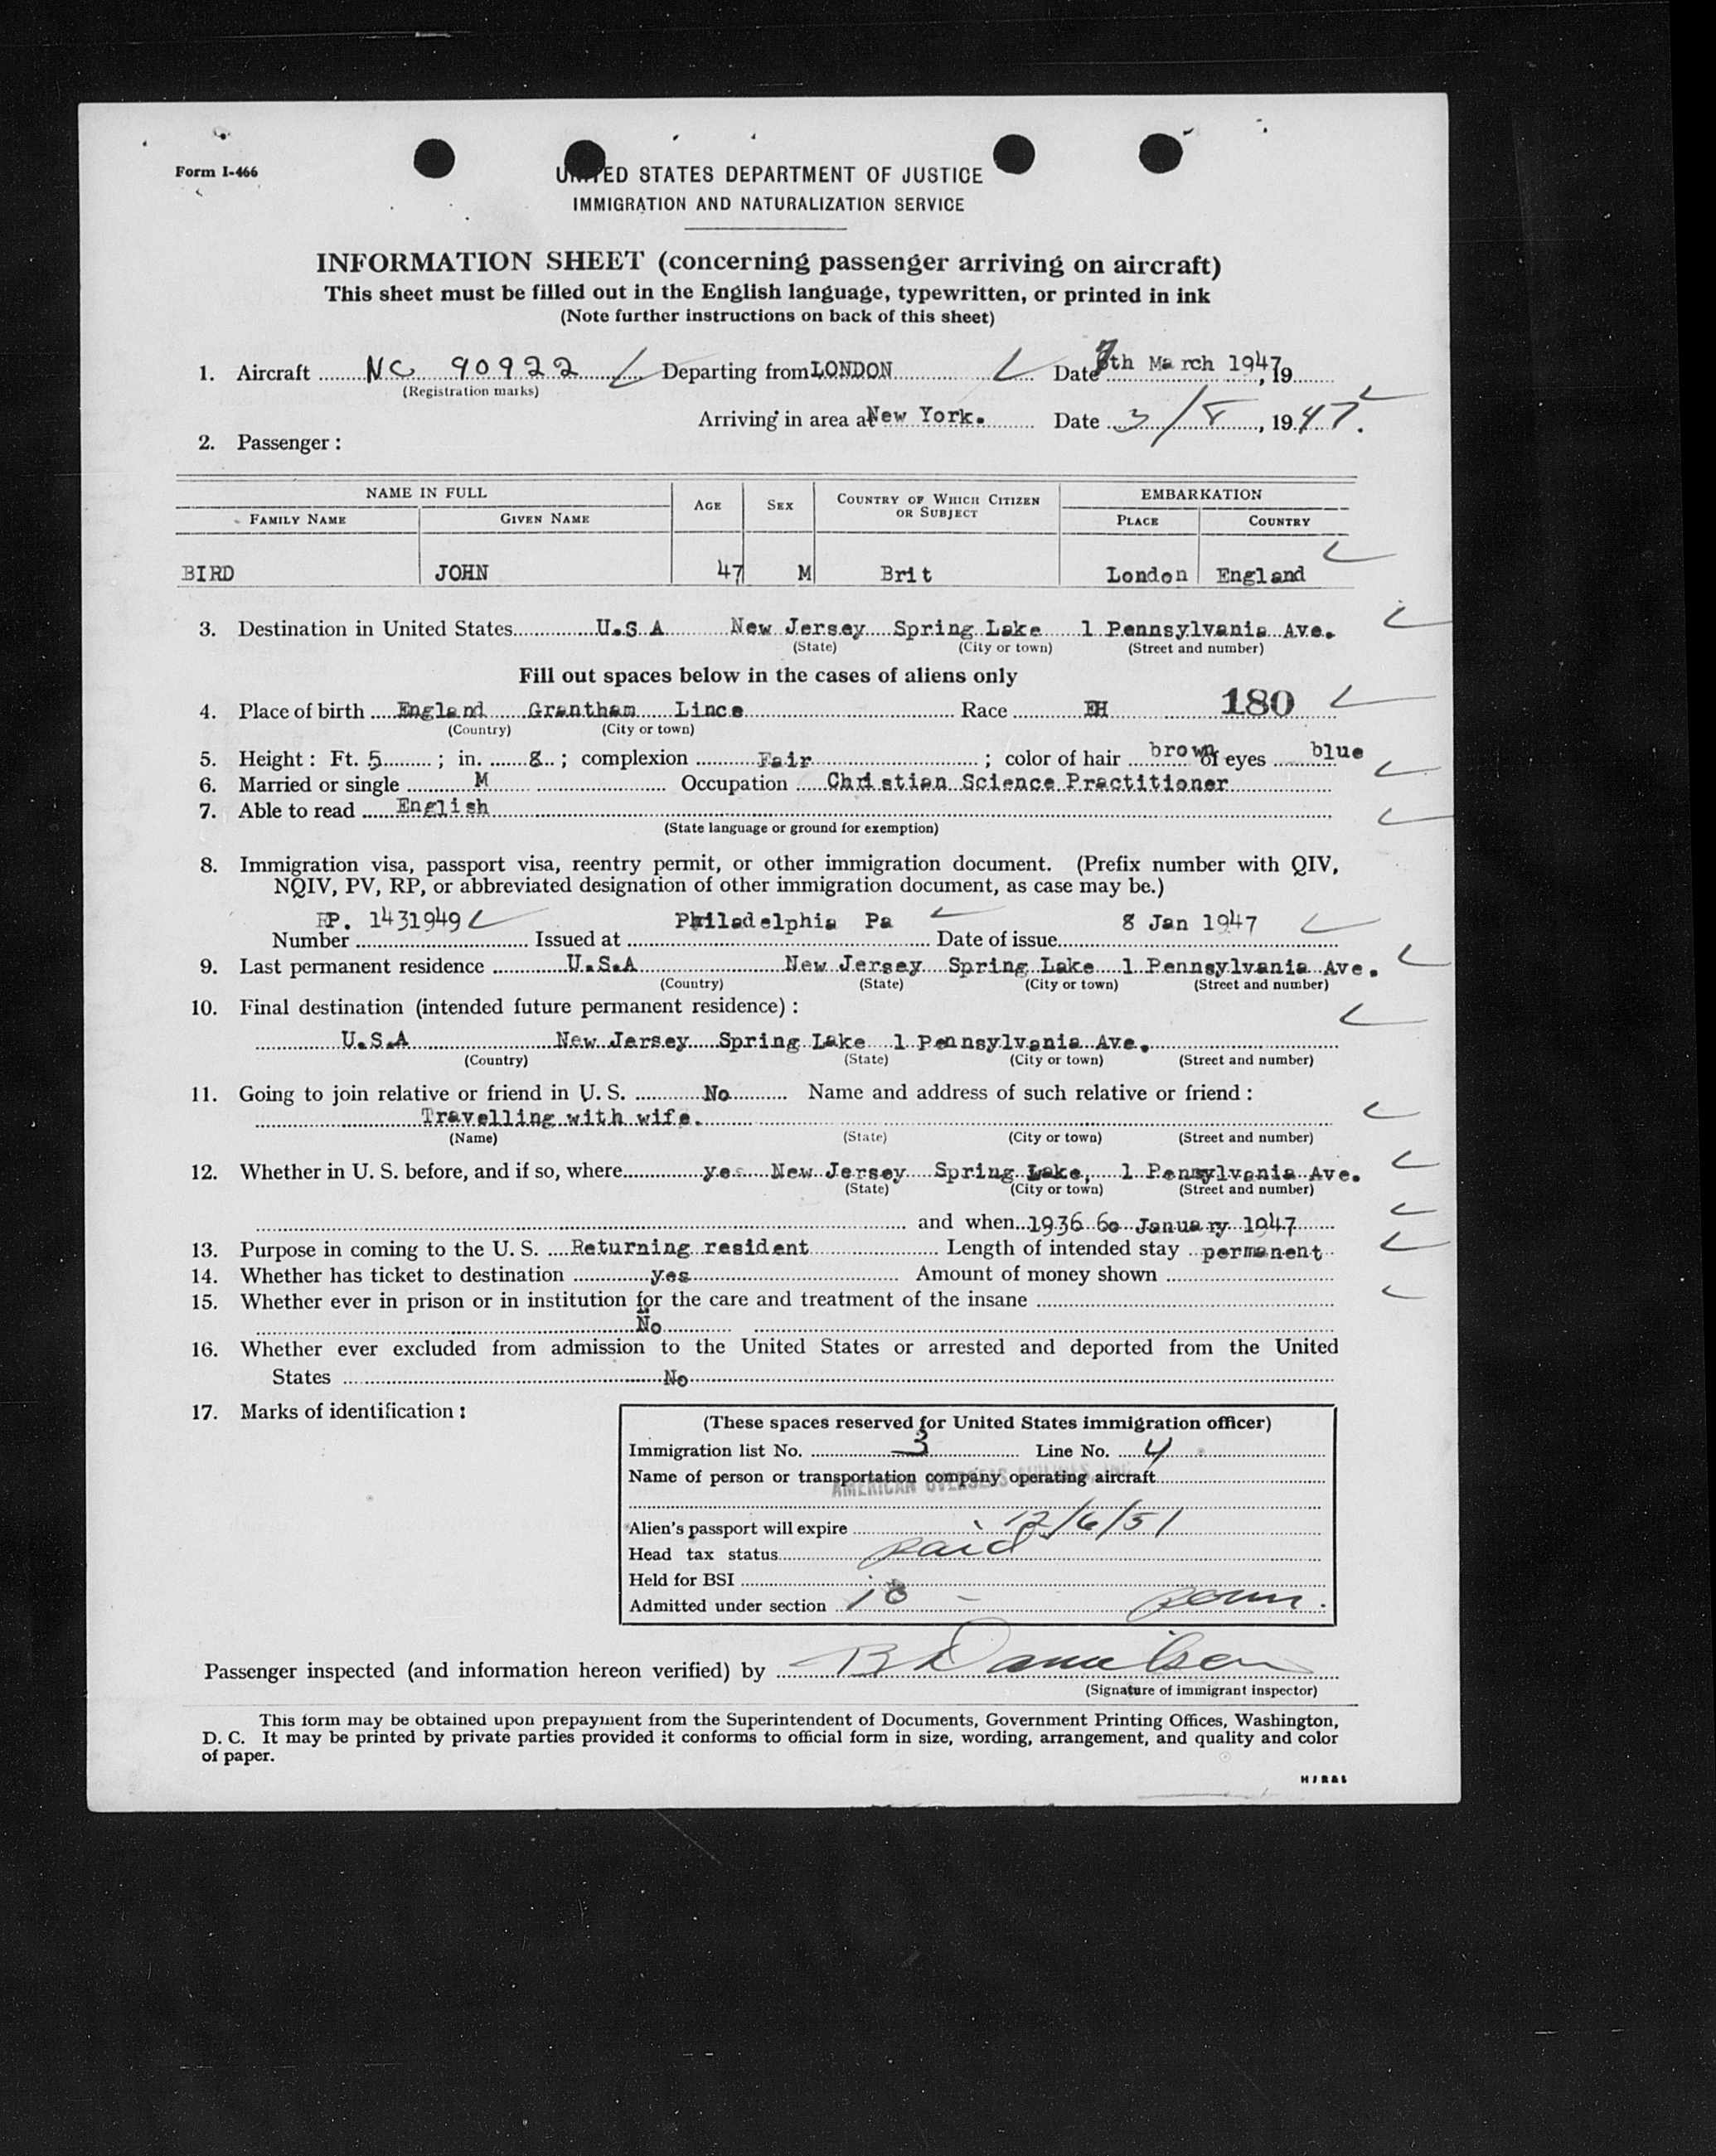 Form I-466
UNITED STATES DEPARTMENT OF JUSTICE
IMMIGRATION AND NATURALIZATION SERVICE
INFORMATION SHEET (concerning passenger arriving on aircraft)
This sheet must be filled out in the English language, typewritten, or printed in ink
(Note further instructions on back of this sheet)
1. Aircraft NC 90922 Departing from LONDON Date 7th March 1947, 19
(Registration marks)
Arriving in area at New York. Date 3/8, 1947.
2. Passenger:
NAME IN FULL AGE SEX COUNTRY OF WHICH CITIZEN OR SUBJECT EMBARKATION
FAMILY NAME GIVEN NAME PLACE COUNTRY
BIRD JOHN 47 M Brit London England
3. Destination in United States U.S A New Jersey Spring Lake 1 Pennsylvania Ave.
(State) (City or town) (Street and number)
Fill out spaces below in the cases of aliens only
4. Place of birth England Grantham Lincs Race EH 180
(Country) (City or town)
5. Height: Ft. 5; in. 8; complexion Fair; color of hair brown of eyes blue
6. Married or single M Occupation Christian Science Practitioner
7. Able to read English
(State language or ground for exemption)
8. Immigration visa, passport visa, reentry permit, or other immigration document. (Prefix number with QIV,
NQIV, PV, RP, or abbreviated designation of other immigration document, as case may be.)
RP. 1431949 Philadelphia Pa 8 Jan 1947
Number Issued at Date of issue
9. Last permanent residence U.S.A New Jersey Spring Lake 1 Pennsylvania Ave.
(Country) (State) (City or town) (Street and number)
10. Final destination (intended future permanent residence):
U.S.A New Jersey Spring Lake 1 Pennsylvania Ave.
(Country) (State) (City or town) (Street and number)
11. Going to join relative or friend in U. S. No Name and address of such relative or friend:
Travelling with wife.
(Name) (State) (City or town) (Street and number)
12. Whether in U. S. before, and if so, where yes New Jersey Spring Lake, 1 Pennsylvania Ave.
(State) (City or town) (Street and number)
and when 1936 to January 1947
13. Purpose in coming to the U. S. Returning resident Length of intended stay permanent
14. Whether has ticket to destination yes Amount of money shown
15. Whether ever in prison or in institution for the care and treatment of the insane
No
16. Whether ever excluded from admission to the United States or arrested and deported from the United
States No
17. Marks of identification:
(These spaces reserved for United States immigration officer)
Immigration list No. 3 Line No. 4
Name of person or transportation company operating aircraft
AMERICAN OVERSEAS AIRLINES, INC.
Alien's passport will expire 12/6/51
Head tax status paid
Held for BSI
Admitted under section 10 - perm.
Passenger inspected (and information hereon verified) by B Danielsen
(Signature of immigrant inspector)
This form may be obtained upon prepayment from the Superintendent of Documents, Government Printing Offices, Washington,
D. C. It may be printed by private parties provided it conforms to official form in size, wording, arrangement, and quality and color
of paper.